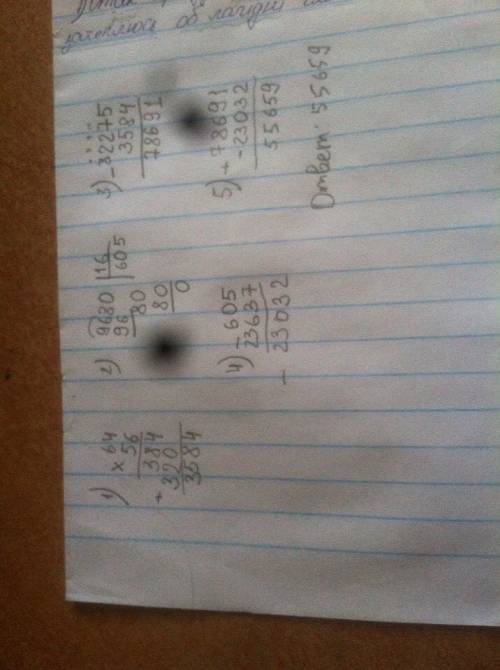 1) × 64
56
384
+ 320
3584
2) 9680 | 16
96 | 605
80
80
0
3) - 82275
3584
78691
4) - 605
23637
- 23032
5) + 78691
- 23032
55659
Ответ: 55659